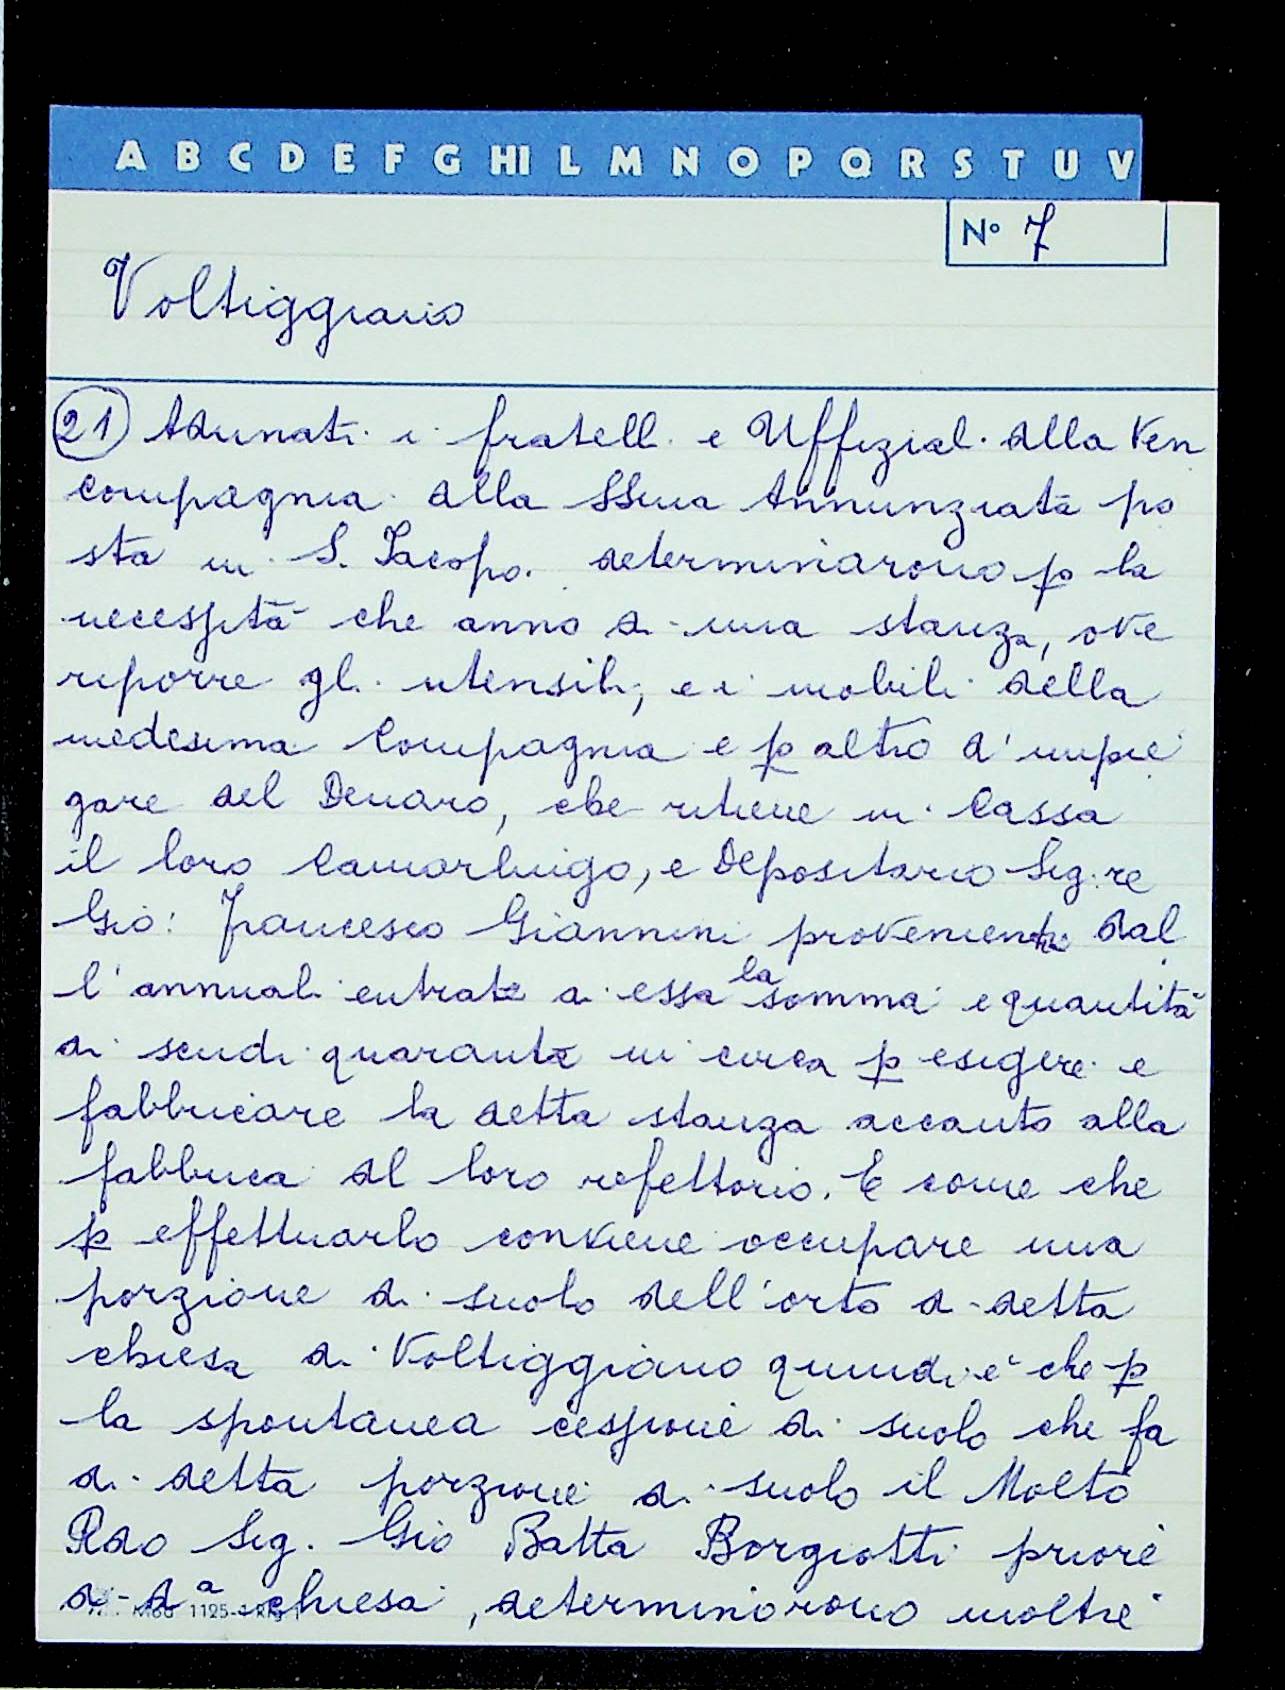 A B C D E F G HI L M N O P Q R S T U V
N° 7
Voltiggiano
21) Adunati i fratelli e Uffiziali della Ven
Compagnia della SSma Annunziata po
sta in S. Jacopo. determinarono p la
necessità che anno di una stanza, ove
riporre gli utensili, e i mobili della
medesima Compagnia e p altro d'impie
gare del Denaro, che ritiene in Cassa
il loro Camarlingo, e Depositario Sig.re
Gio: Francesco Giannini proveniente dal
l'annuali entrate di essa la somma e quantità
di scudi quaranta in circa p esigere e
fabbricare la detta stanza accanto alla
fabbrica del loro refettorio. E come che
p effettuarlo conviene occupare una
porzione di suolo dell'orto di detta
chiesa di Voltiggiano quindi è che p
la spontanea cessione di suolo che fa
di detta porzione di suolo il Molto
Rdo Sig. Gio Batta Borgiotti priore
di da chiesa, determinorono inoltre
1125-4